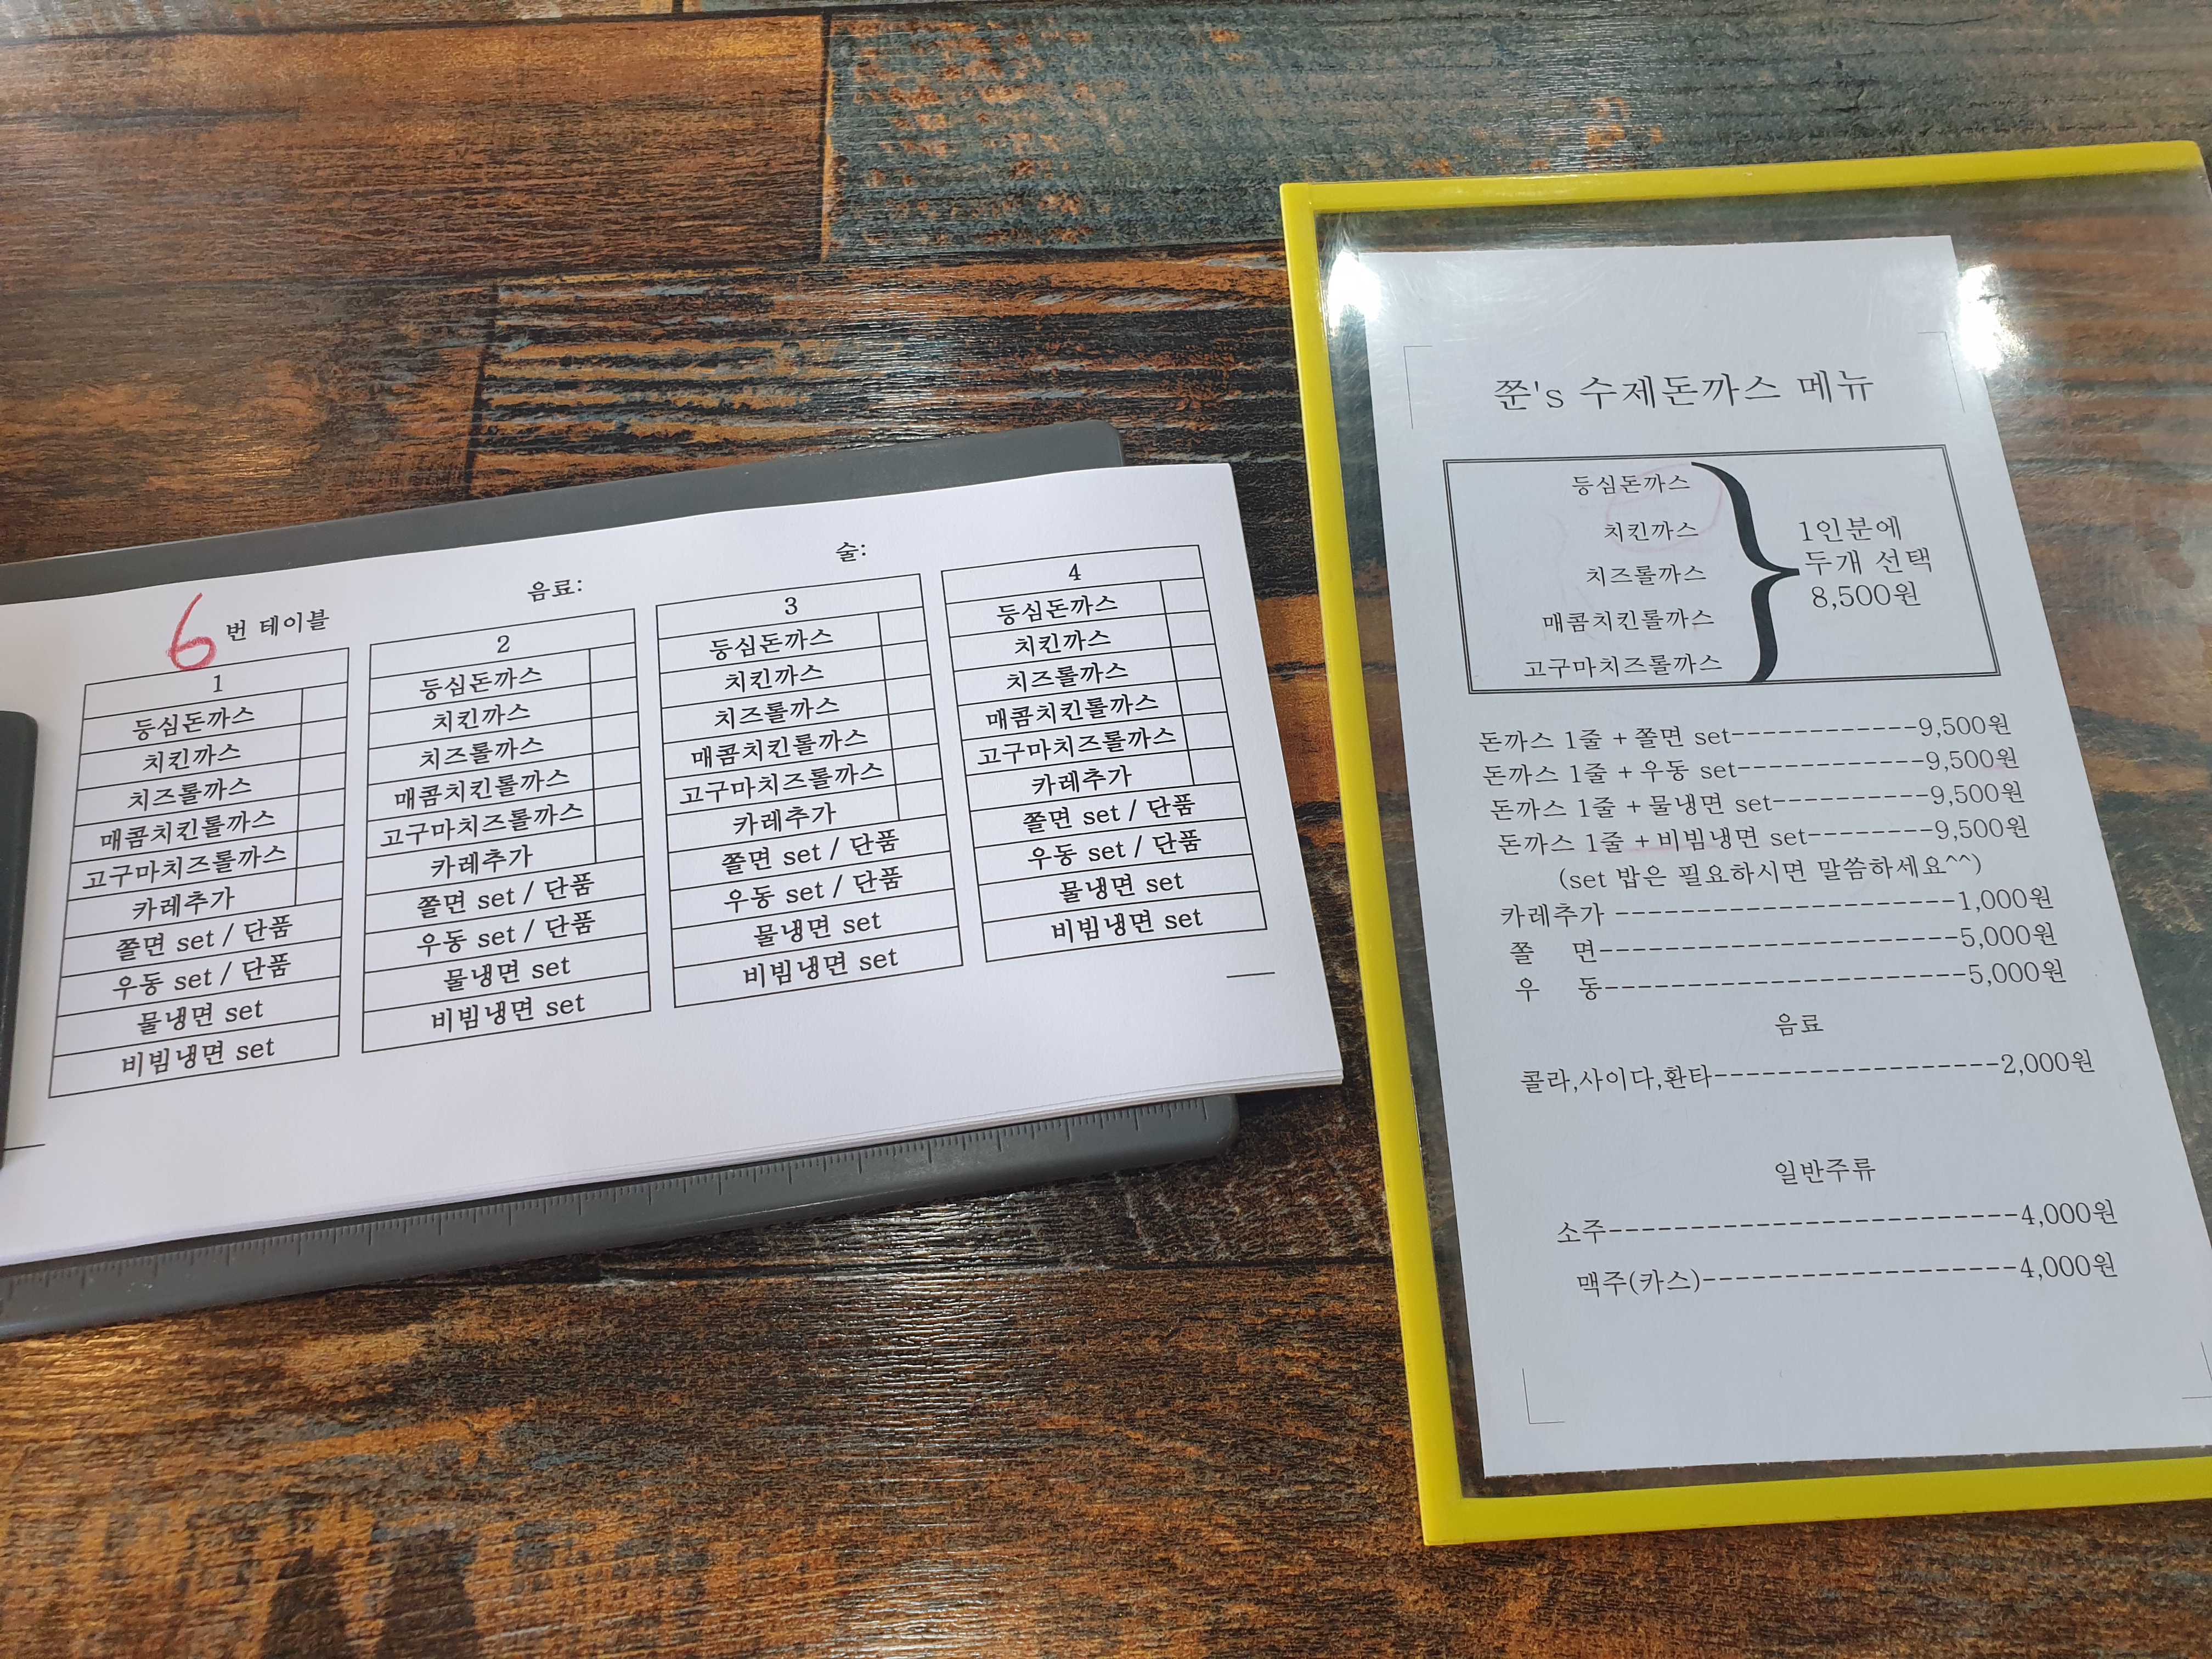 6 번 테이블
음료:
술:
1
등심돈까스
치킨까스
치즈롤까스
매콤치킨롤까스
고구마치즈롤까스
카레추가
쫄면 set / 단품
우동 set / 단품
물냉면 set
비빔냉면 set
2
등심돈까스
치킨까스
치즈롤까스
매콤치킨롤까스
고구마치즈롤까스
카레추가
쫄면 set / 단품
우동 set / 단품
물냉면 set
비빔냉면 set
3
등심돈까스
치킨까스
치즈롤까스
매콤치킨롤까스
고구마치즈롤까스
카레추가
쫄면 set / 단품
우동 set / 단품
물냉면 set
비빔냉면 set
4
등심돈까스
치킨까스
치즈롤까스
매콤치킨롤까스
고구마치즈롤까스
카레추가
쫄면 set / 단품
우동 set / 단품
물냉면 set
비빔냉면 set
쭌's 수제돈까스 메뉴
등심돈까스
치킨까스
치즈롤까스
매콤치킨롤까스
고구마치즈롤까스
1인분에
두개 선택
8,500원
돈까스 1줄 + 쫄면 set------------9,500원
돈까스 1줄 + 우동 set------------9,500원
돈까스 1줄 + 물냉면 set----------9,500원
돈까스 1줄 + 비빔냉면 set--------9,500원
(set 밥은 필요하시면 말씀하세요^^)
카레추가 ---------------------1,000원
쫄 면----------------------5,000원
우 동----------------------5,000원
음료
콜라,사이다,환타------------------2,000원
일반주류
소주-------------------------4,000원
맥주(카스)-------------------4,000원